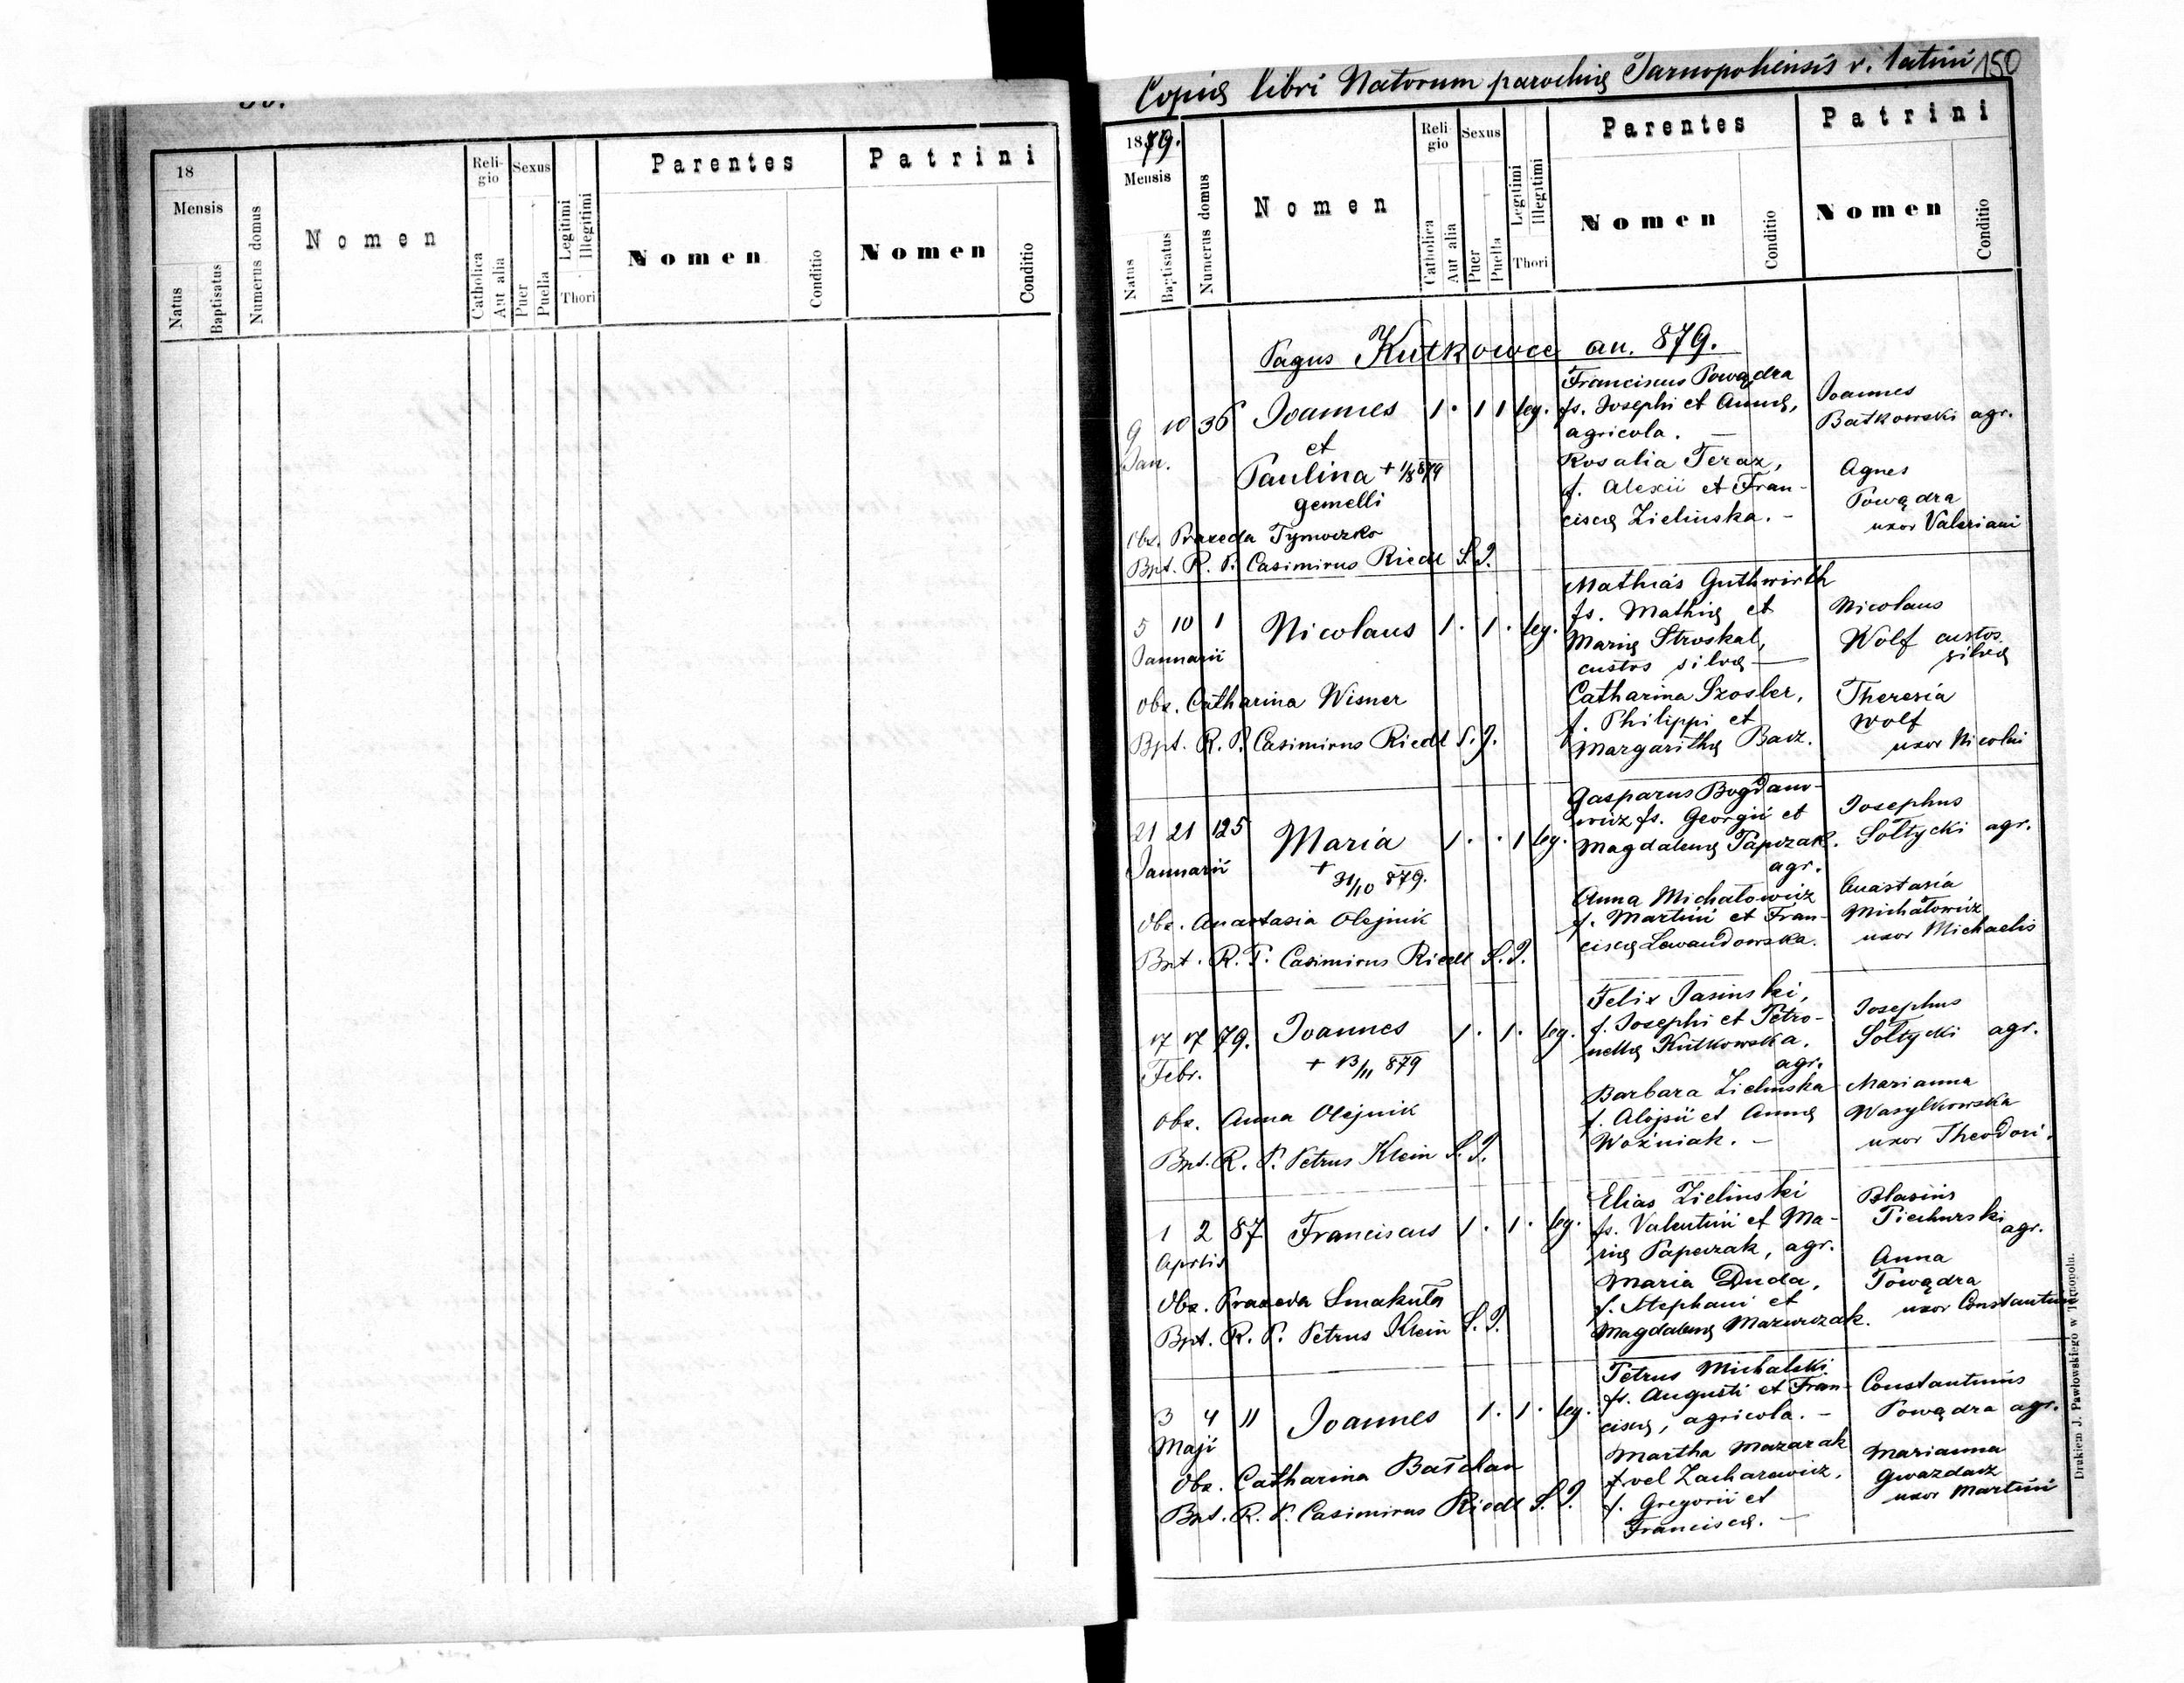 18
Mensis
Natus
Baptisatus
Numerus domus
Nomen
Reli-
gio
Catholica
Aut alia
Sexus
Puer
Puella
Legitimi
Illegitimi
Thori
Parentes
Nomen
Conditio
Patrini
Nomen
Conditio
Copia libri Natorum parochiæ Tarnopoliensis r. latini 150
1879.
Mensis
Natus
Baptisatus
Numerus domus
Nomen
Reli-
gio
Catholica
Aut alia
Sexus
Puer
Puella
Legitimi
Illegitimi
Thori
Parentes
Nomen
Conditio
Patrini
Nomen
Conditio
Pagus Kutkowce an. 879.
9 10 36 Joannes 1 · 1 1 leg.
Jan.
et
Paulina + 1/8 879
gemelli
Obs. Praxeda Tymoczko
Bpt. R. P. Casimirus Riedl S. J.
Franciscus Powądra
fs. Josephi et Annæ,
agricola. —
Rosalia Teraz,
f. Alexii et Fran-
ciscæ Zielinska. -
Joannes
Batkowski agr.
Agnes
Powądra
uxor Valeriani
5 10 1 Nicolaus 1 · 1 · leg.
Januarii
Obs. Catharina Wisner
Bpt. R. P. Casimirus Riedl S. J.
Mathias Guthwirth
fs. Mathiæ et
Mariæ Stroskal,
custos silvæ —
Catharina Szosler,
f. Philippi et
Margarithæ Bacz.
Nicolaus
Wolf custos
silvæ
Theresia
Wolf
uxor Nicolai
21 21 125 Maria 1 · · 1 leg.
Januarii
+
31/10 879.
Obs. Anastasia Olejnik
Bpt. R. P. Casimirus Riedl S. J.
Gasparus Bogdano-
wicz fs. Georgii et
Magdalenæ Papczak.
agr.
Anna Michałowicz
f. Martini et Fran-
ciscæ Lewandowska.
Josephus
Sołtycki agr.
Anastasia
Michałowicz
uxor Michaelis
17 17 79. Joannes 1 · 1 · leg.
Febr.
+ 13/11 879
Obs. Anna Olejnik
Bpt. R. P. Petrus Klein S. J.
Felix Jasinski,
f. Josephi et Petro-
nellæ Kutkowska.
agr.
Barbara Zielinska
f. Alojsii et Annæ
Woźniak. -
Josephus
Sołtycki agr.
Marianna
Wasylkowska
uxor Theodori.
1 2 87 Franciscus 1 · 1 · leg.
Aprlis
Obs. Praxeda Smakuła
Bpt. R. P. Petrus Klein S. J.
Elias Zielinski
fs. Valentini et Ma-
riæ Papczak, agr.
Maria Duda,
f. Stephani et
Magdalenæ Mazurczak.
Blasius
Piechurski
agr.
Anna
Powądra
uxor Constantini
3 4 11 Joannes 1 · 1 · leg.
Maji
Obs. Catharina Bałdan
Bpt. R. P. Casimirus Riedl S. J.
Petrus Michalski
fs. Augusti et Fran-
ciscæ, agricola. -
Martha Mazarak
vel Zacharowicz,
f. Gregorii et
Franciscæ. —
Constantinus
Powądra agr.
Marianna
Gwazdacz
uxor Martini
Drukiem J. Pawłowskiego w Tarnopolu.